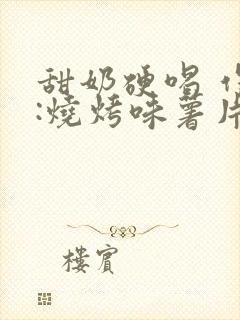 甜奶硬唱
:燒烤味薯片
樓賓